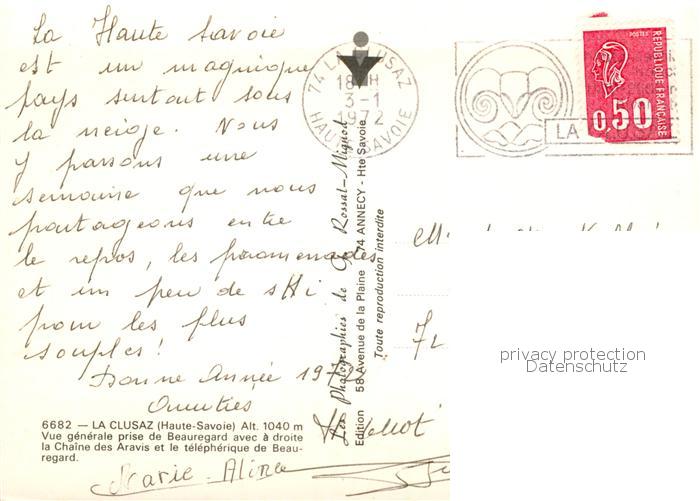 La Haute Savoie
est un magnique
pays surtout sous
la neige. Nous
y passons une
semaine que nous
partageons entre
le repos, les promenades
et un peu de sKi
pour les plus
souples!
Bonne Année 1972
Amitiés
Marie-Aline
6682 — LA CLUSAZ (Haute-Savoie) Alt. 1040 m
Vue générale prise de Beauregard avec à droite
la Chaîne des Aravis et le téléphérique de Beau-
regard.
Les Photographies de G. Rossat-Mignod
Edition 58 Avenue de la Plaine 74 ANNECY - Hte Savoie
Toute reproduction interdite
74 LA CLUSAZ
18 H
3-1
1972
HAUTE SAVOIE
LA
POSTES
REPUBLIQUE FRANÇAISE
0,50
privacy protection
Datenschutz